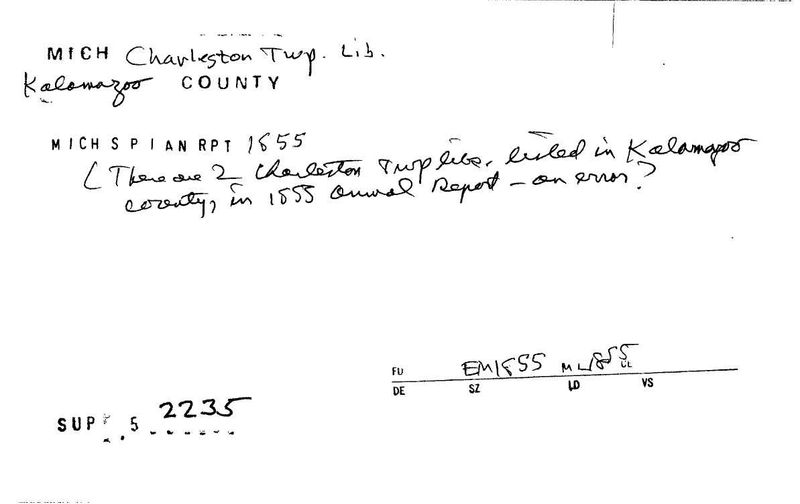 MICH Charleston Twp. Lib.
Kalamazoo COUNTY
MICH S P I AN RPT 1855
(There are 2 Charleston Twp libs. listed in Kalamazoo
county, in 1855 Annual Report - an error?)
FU EM1855 ML1855
CL
DE SZ LD VS
SUP 5 2235